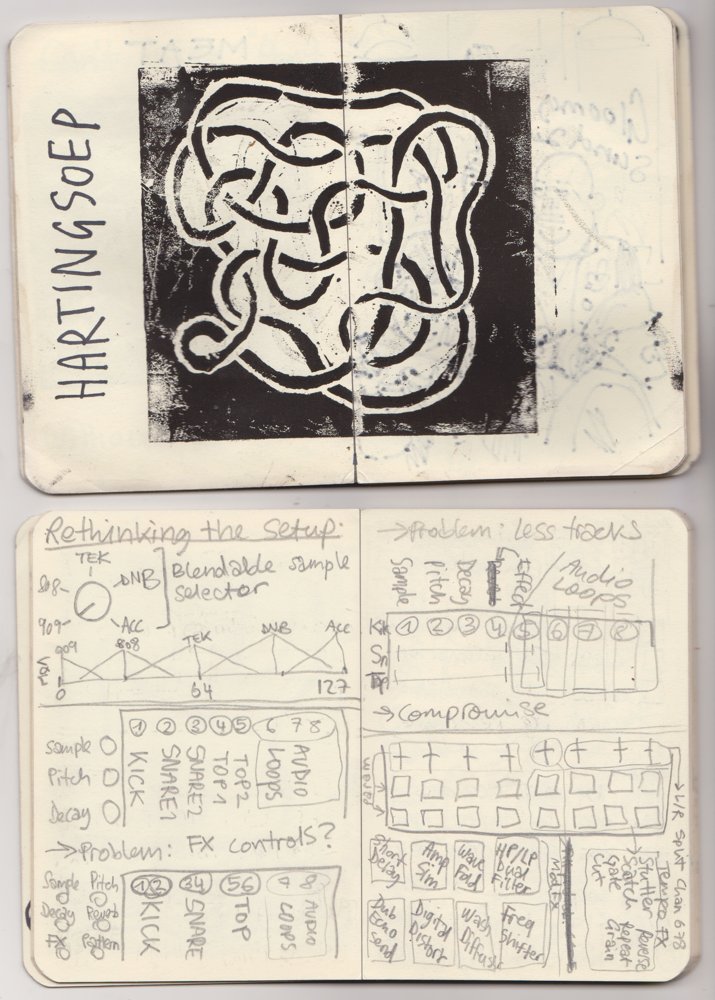 HARTINGSOEP
Rethinking the Setup:
TEK
808-
-DNB
909-
ACC
Blendable sample
selector
909
808
TEK
DNB
ACC
Vol
0
64
127
Sample
Pitch
Decay
1 2 3 4 5 6 7 8
KICK
SNARE1
SNARE2
TOP1
TOP2
AUDIO
LOOPS
→Problem: FX controls?
Sample Pitch
Decay Reverb
FX Pattern
12 34 56 7 8
KICK
SNARE
TOP
AUDIO
LOOPS
→Problem: Less tracks
Sample
Pitch
Decay
Effect
Audio
Loops
1 2 3 4 5 6 7 8
→Compromise
→L/R Split Chan 678
Short
Delay
Amp
Sim
Wave
Fold
HP/LP
Dual
Filter
Dub
Echo
Send
Digital
Distort
Wash
Diffuse
Freq
Shifter
Mod FX
Tempo FX
Stutter Reverse
Scratch Repeat
Gate Grain
Cut